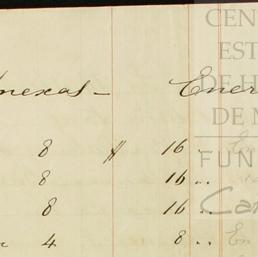 CEN
EST
DE H
DE M
FUN
Ca
nexas — Ener
8 $ 16 ..
8 16 ..
8 16 ..
4 8 ..